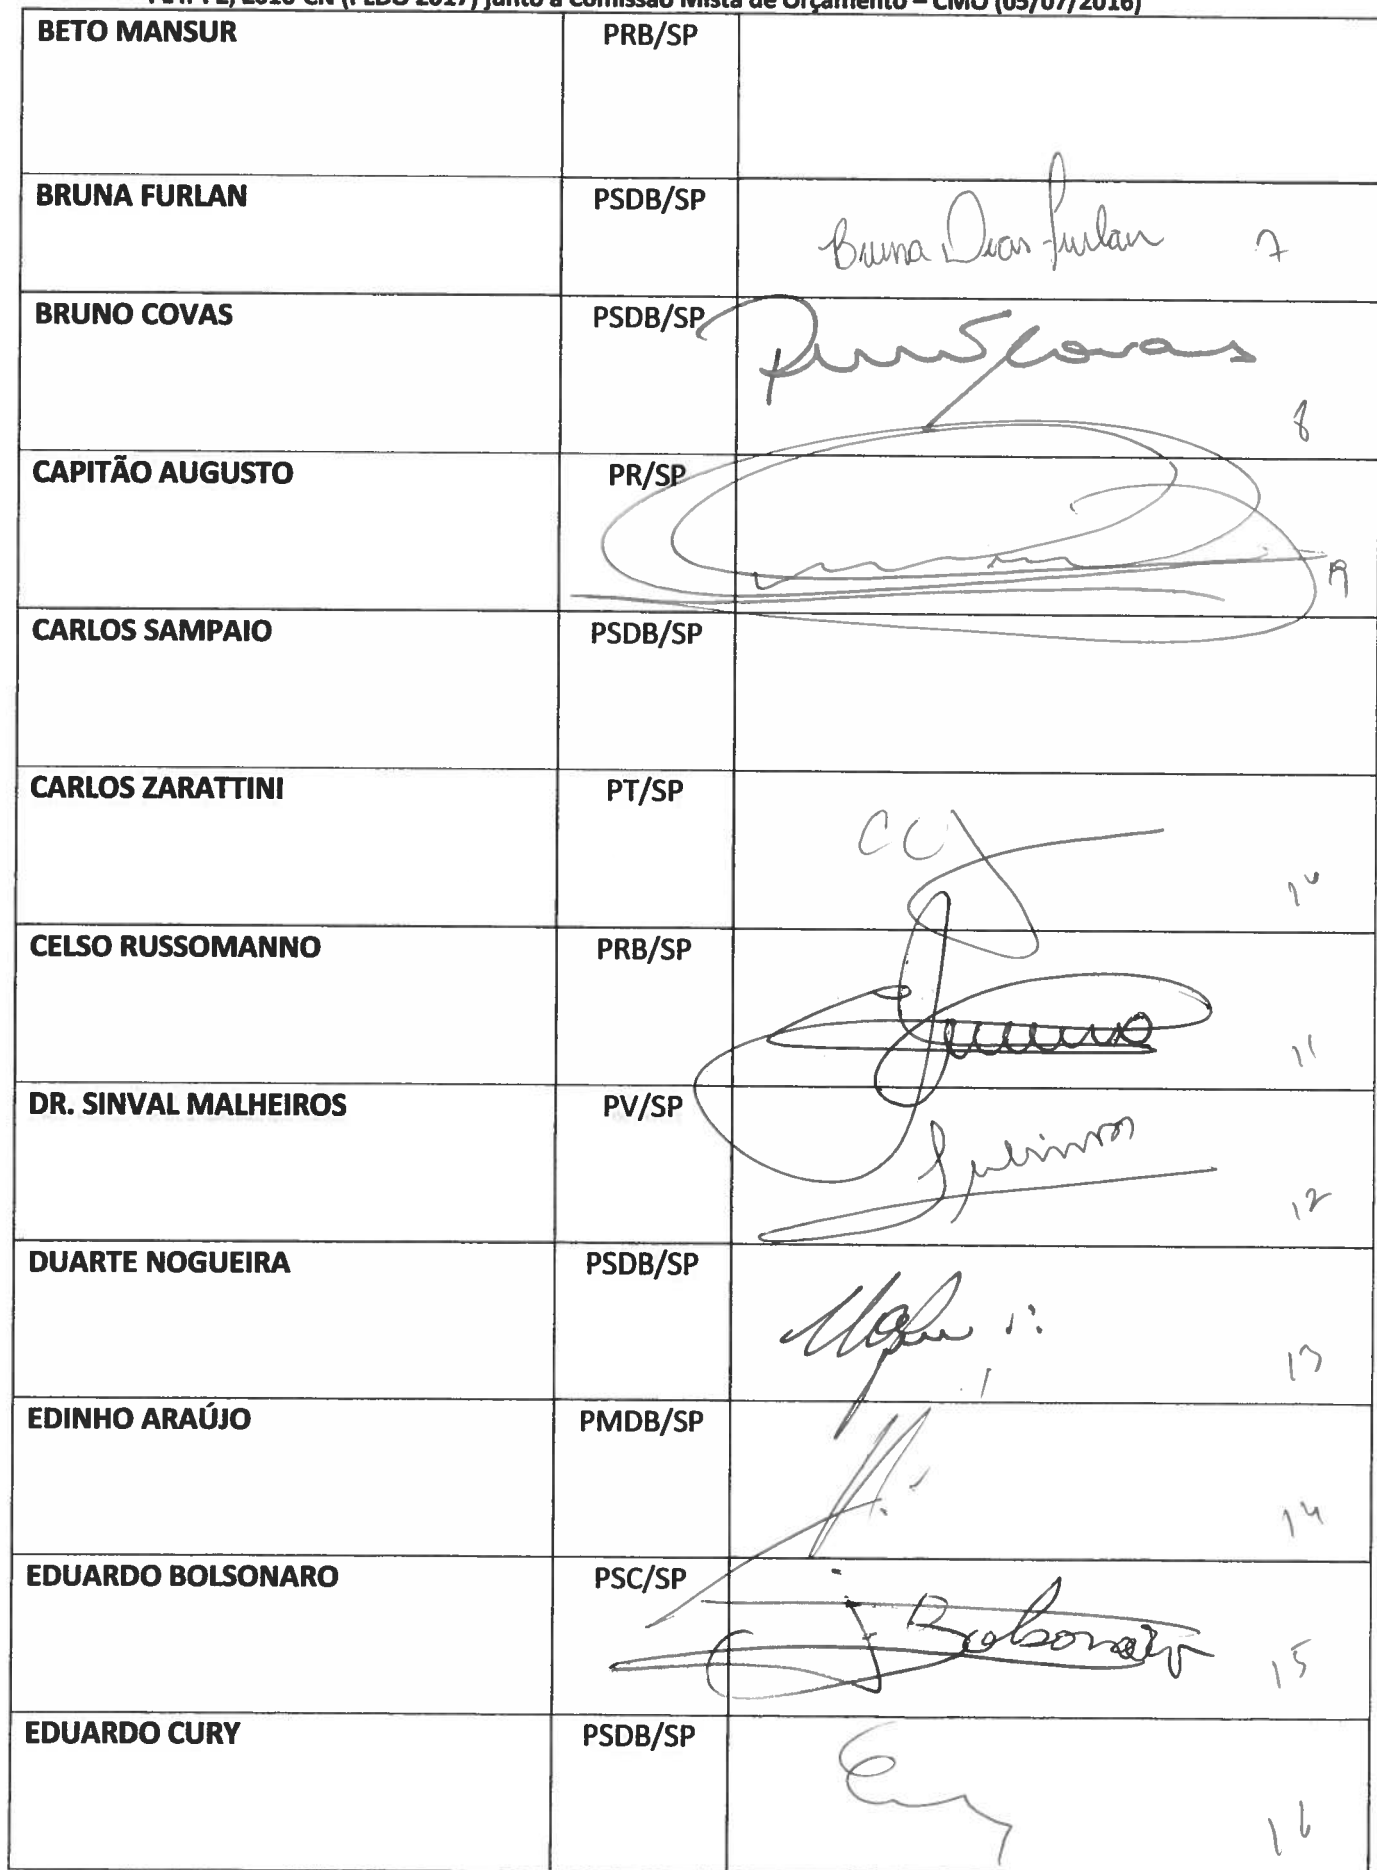 2, 2016-CN (PLDO 2017) junto à Comissão Mista de Orçamento – CMO (05/07/2016)
BETO MANSUR PRB/SP
BRUNA FURLAN PSDB/SP Bruna Dias Furlan 7
BRUNO COVAS PSDB/SP Bruno Covas 8
CAPITÃO AUGUSTO PR/SP 9
CARLOS SAMPAIO PSDB/SP
CARLOS ZARATTINI PT/SP 10
CELSO RUSSOMANNO PRB/SP 11
DR. SINVAL MALHEIROS PV/SP 12
DUARTE NOGUEIRA PSDB/SP 13
EDINHO ARAÚJO PMDB/SP 14
EDUARDO BOLSONARO PSC/SP Bolsonaro 15
EDUARDO CURY PSDB/SP 16